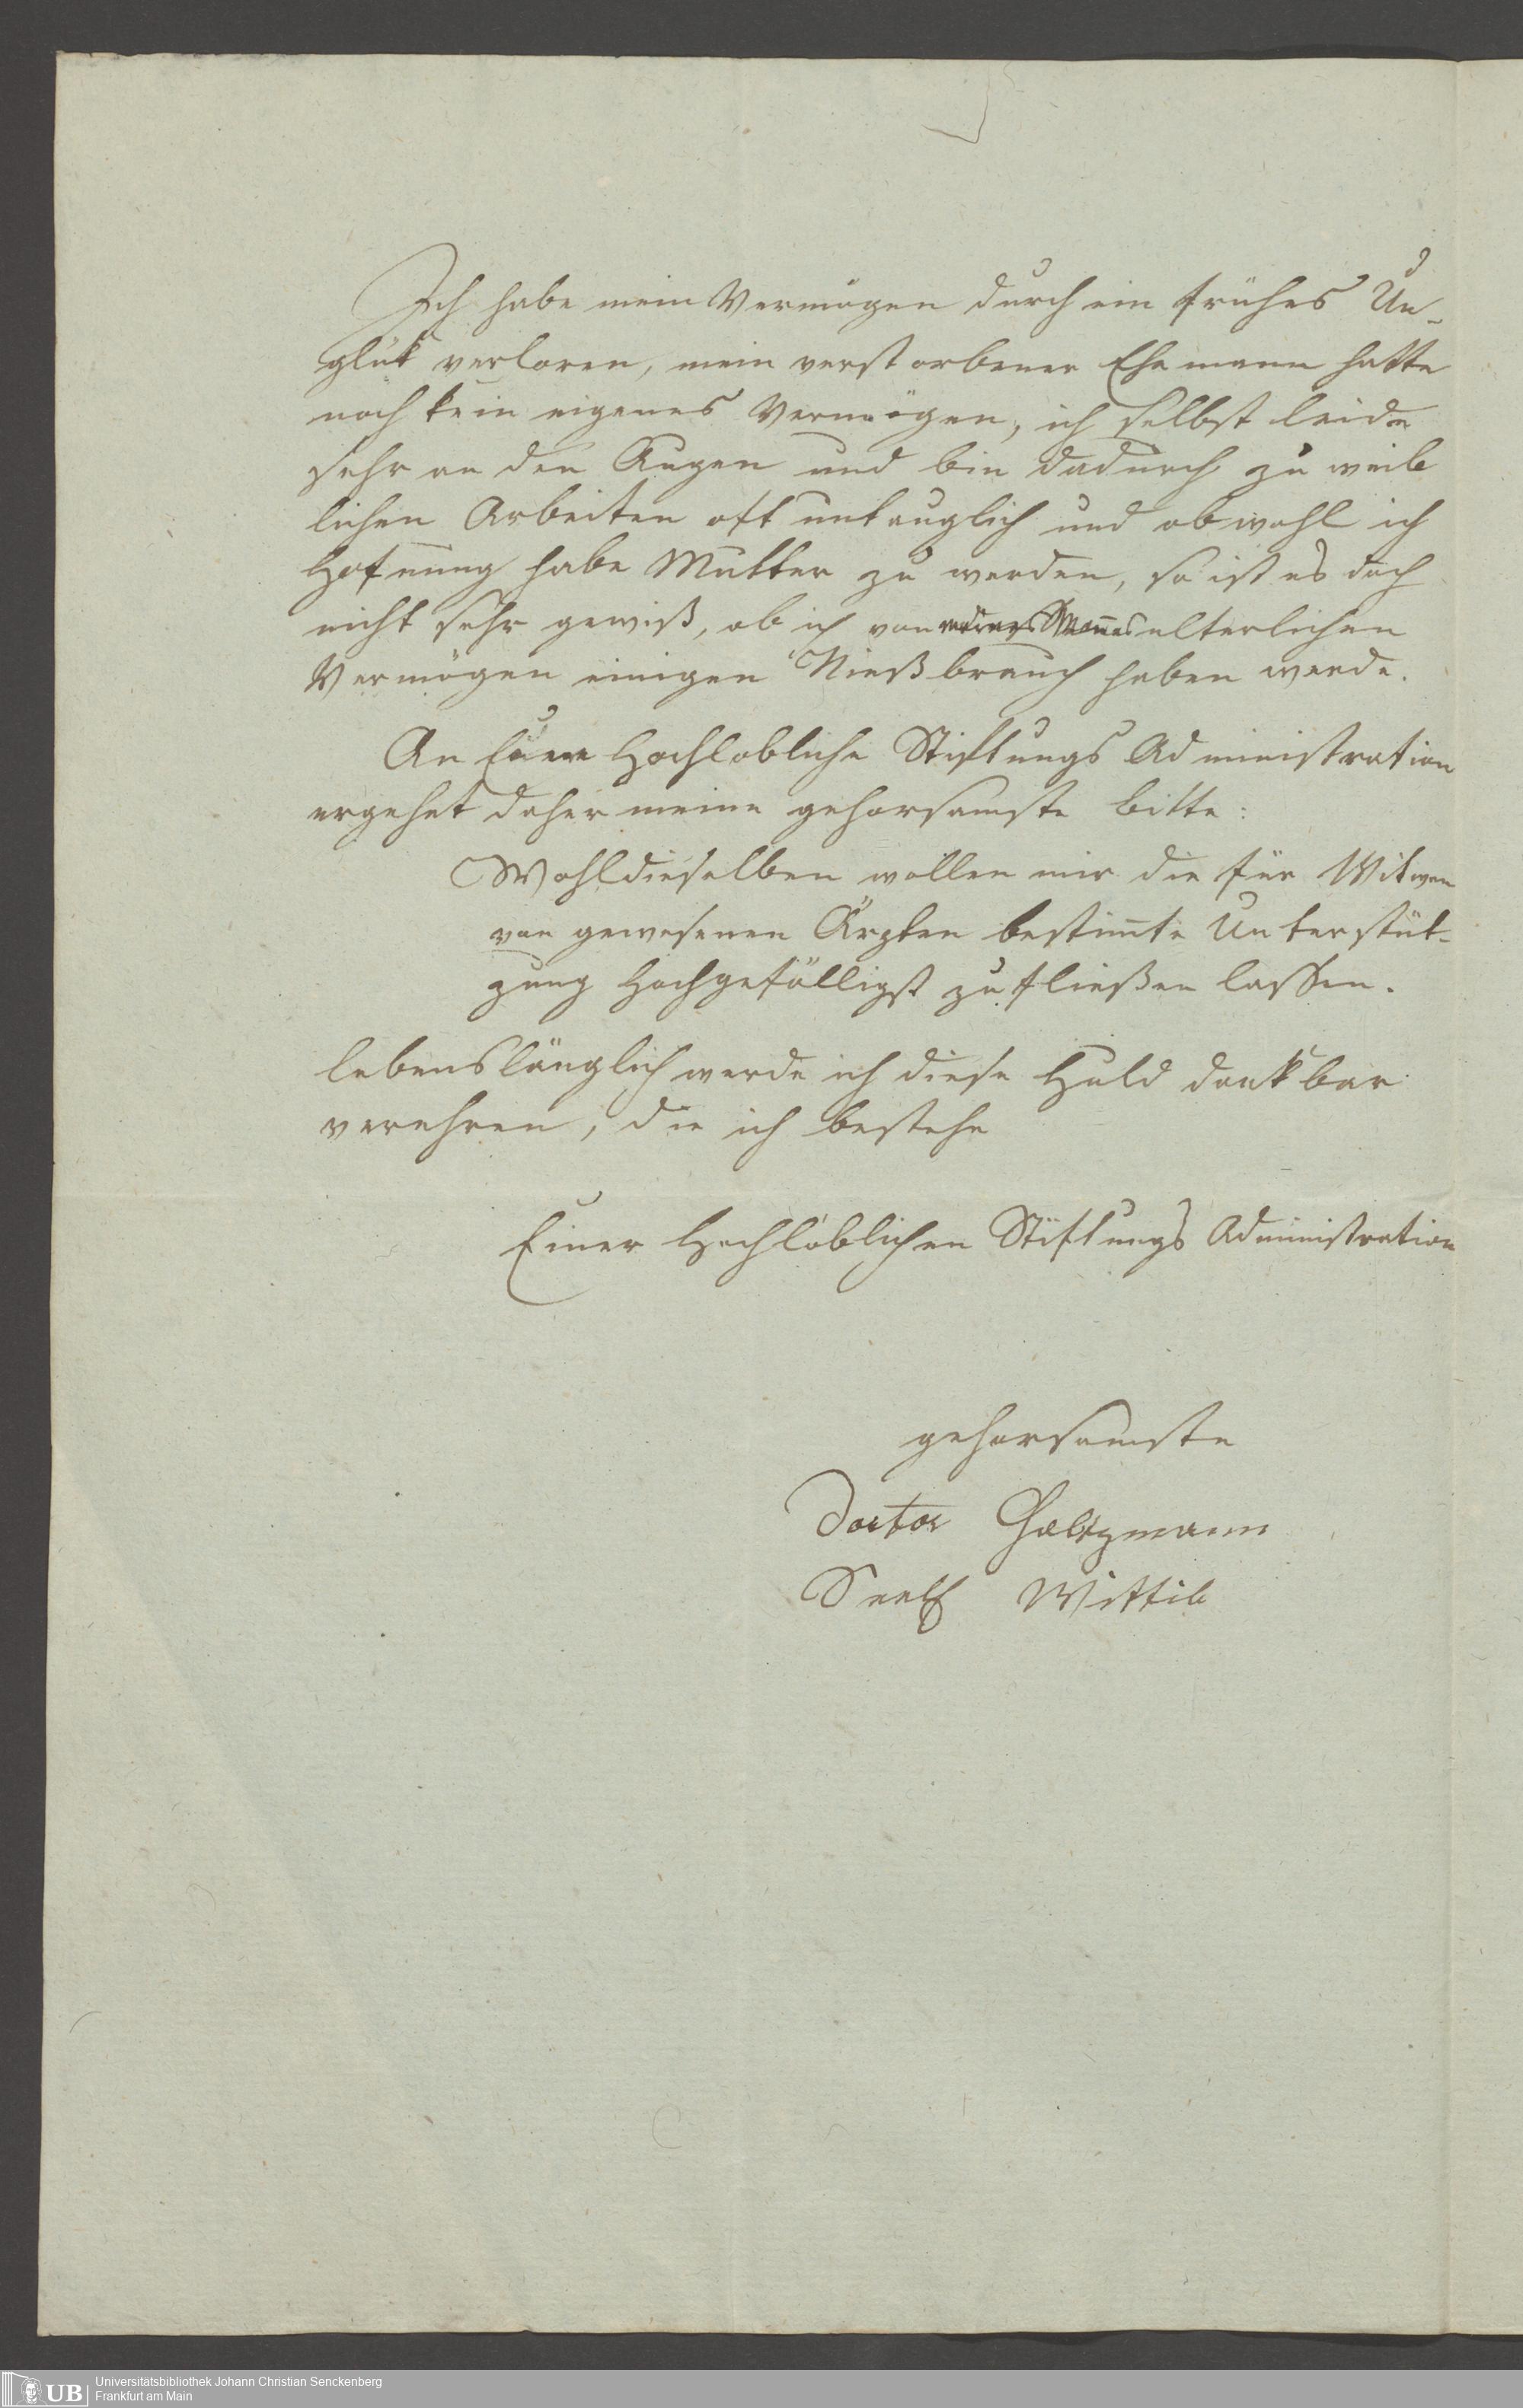 Ich habe mein Vermögen durch ein frühes Un-
glük verloren, mein verstorbener Ehemann hatte
noch kein eigenes Vermögen, ich selbst leide
sehr an den Augen und bin dadurch zu weib
lichen Arbeiten oft untauglich und obwohl ich
Hofnung habe Mutter zu werden, so ist es doch
nicht sehr gewiß, ob ich von meines Mannes elterlichen
Vermögen einigen Nießbrauch haben werde.
An Eine Hochlobliche Stiftungs Administration
ergehet daher meine gehorsamste bitte:
Wohldieselben wollen mir die für Witwen
von gewesenen Ärzten bestimte Unterstüt-
zung Hochgefälligst zufließen lassen.
lebenslänglich werde ich diese Huld dankbar
verehren, die ich bestehe
Einer Hochlöblichen Stiftungs Administration
gehorsamste
Doctor
Seel Wittib
UB
Universitätsbibliothek Johann Christian Senckenberg
Frankfurt am Main